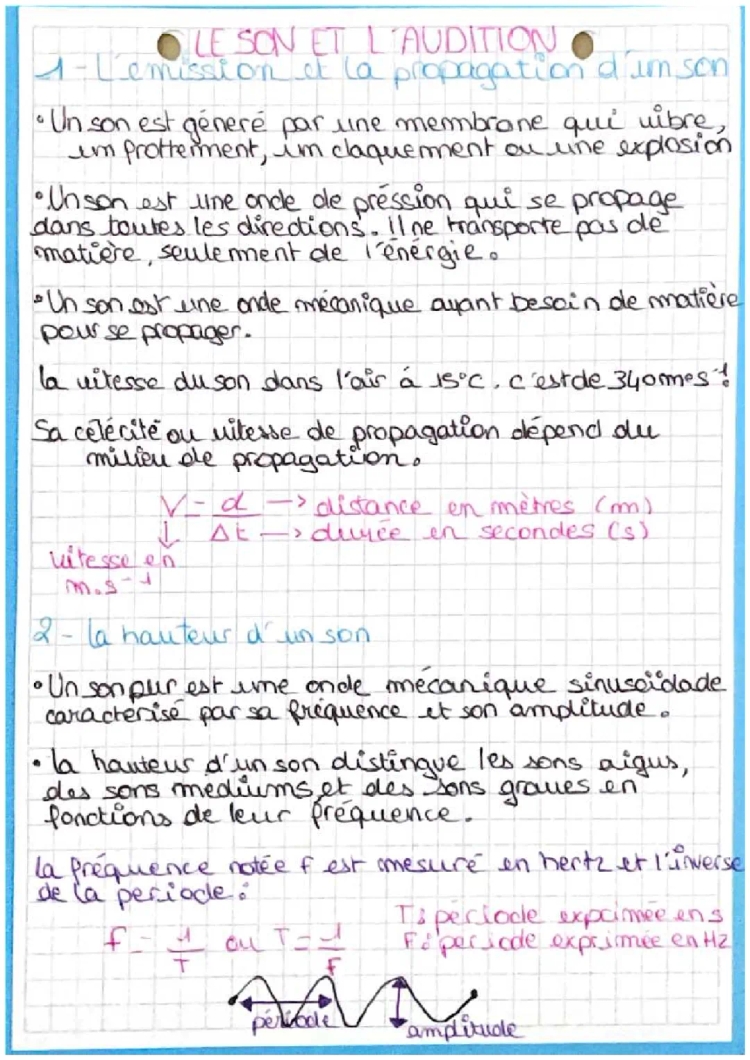 LE SON ET L'AUDITION
1 - L'émission et la propagation d'un son
• Un son est généré par une membrane qui vibre,
un frottement, un claquement ou une explosion
• Un son est une onde de préssion qui se propage
dans toutes les directions. Il ne transporte pas de
matière, seulement de l'énérgie.
• Un son est une onde mécanique ayant besoin de matière
pour se propager.
la vitesse du son dans l'air à 15°c, c'est de 340 m s⁻¹.
Sa célécité ou vitesse de propagation dépend du
milieu de propagation.
V = d → distance en mètres (m)
↓ Δt → durée en secondes (s)
vitesse en
m.s⁻¹
2 - la hauteur d'un son
• Un son pur est une onde mécanique sinusoïdade
caractérisé par sa fréquence et son amplitude.
• la hauteur d'un son distingue les sons aigus,
des sons médiums, et des sons graves en
fonctions de leur fréquence.
la fréquence notée f est mesuré en hertz et l'inverse
de la periode :
T : période exprimée en s
f = 1/T ou T = 1/F F : période exprimée en Hz
période
amplitude